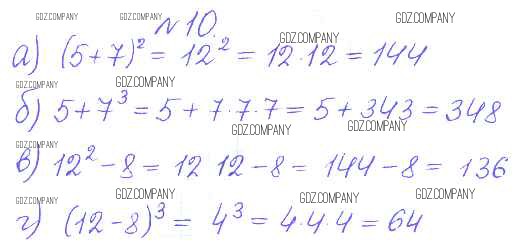 GDZ.COMPANY GDZ.COMPANY №10. GDZ.COMPANY
GDZ.COMPANY
а) (5+7)² = 12² = 12·12 = 144
GDZ.COMPANY GDZ.COMPANY
б) 5+7³ = 5+7·7·7 = 5+343 = 348
GDZ.COMPANY GDZ.COMPANY
GDZ.COMPANY
в) 12²-8 = 12 12-8 = 144-8 = 136
GDZ.COMPANY GDZ.COMPANY GDZ.COMPANY
GDZ.COMPANY
г) (12-8)³ = 4³ = 4·4·4 = 64